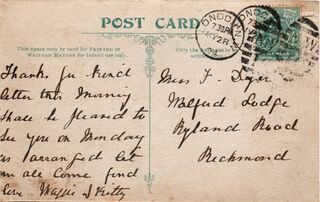 POST CARD
This Space may be used for Printed or Written Matter for Inland use only.
(Only the Address to be written here.)
LONDON
MY 2
Thanks for kind
letter this Morning
Shall be pleased to
See you on Monday
as arranged let
'm all come fond
love Maggie & Kitty
Miss F.
Lodge
Ryland Road
Richmond